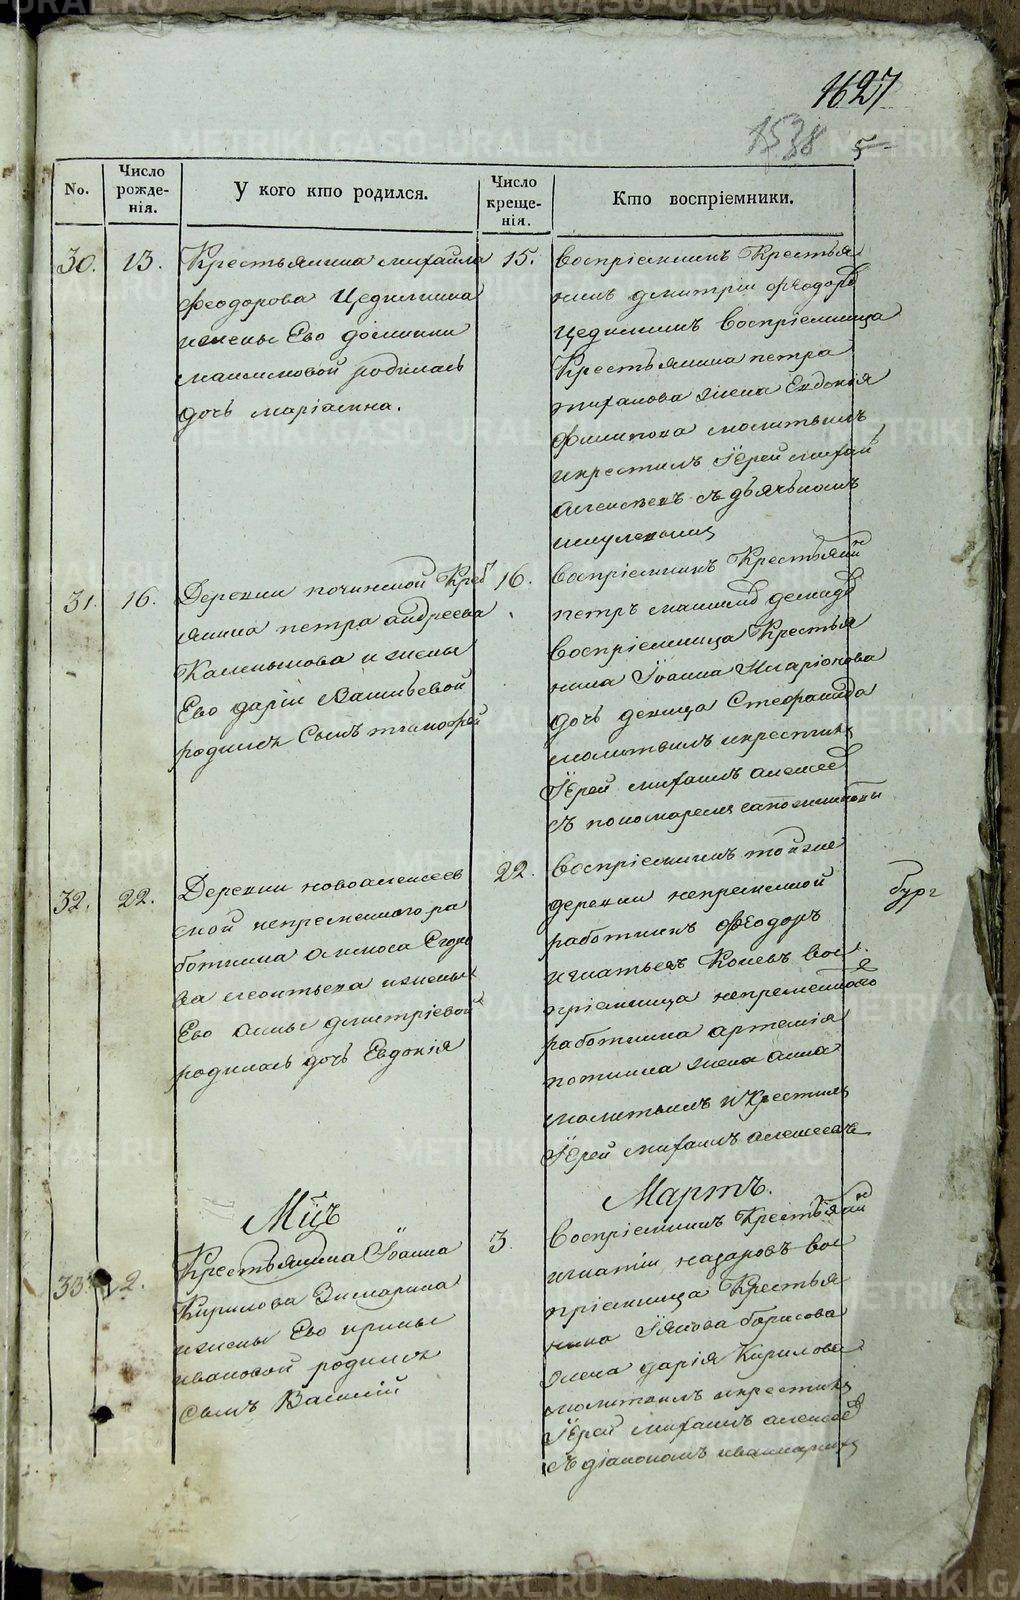 1627
1538
5
No.
Число рожде- нія.
У кого кто родился.
Число креще- нія.
Кто воспріемники.
30.
13.
Крестьянина михаила
феодорова Цедилкина
ижены Ево домники
максимовой родилась
дочь маріамна.
15.
воспріемникъ Крестья
нинъ димитріи феодоръ
Цедилкинъ воспріемница
Крестьянина петра
жена Евдокія
молитвилъ
икрестилъ Іерей михаи
алексѣевъ съ дьячькомъ
31.
16.
Деревни починской Крес
янина петра андреева
Калмыкова ижены
Ево дарїи Васильевой
родился Сынъ тимофей
16.
воспріемникъ Крестьянин
петръ
воспріемница Крестья
нина Іоанна Иларіонова
дочь девица Стефанида
молитвилъ икрестилъ
Іерей михаилъ алексеев
съ пономаремъ
32.
22.
Деревни новоалексеев
ской непременного ра
ботника
ва леонтьева ижены
Ево анны дмитріевой
родилась дочь Евдокія
22.
воспріемникъ тойже
деревни непременной
работникъ феодоръ
игнатьевъ Коневъ вос
пріемница непременного
работника артемія
жена анна
молитвилъ икрестилъ
Іерей михаилъ алексеевъ
бург
Мцъ
Мартъ.
33
2.
Крестьянина Іоанна
Кирилова
ижены Ево ирины
ивановой родился
сынъ Василій
3.
воспріемникъ Крестьянин
игнатіи назаровъ вос
пріемница Крестья
нина Іякова борисова
жена дарія Кирилова
молитвилъ икрестилъ
Іерей михаилъ алексеев
съ діакономъ
METRIKI.GASO-URAL.RU